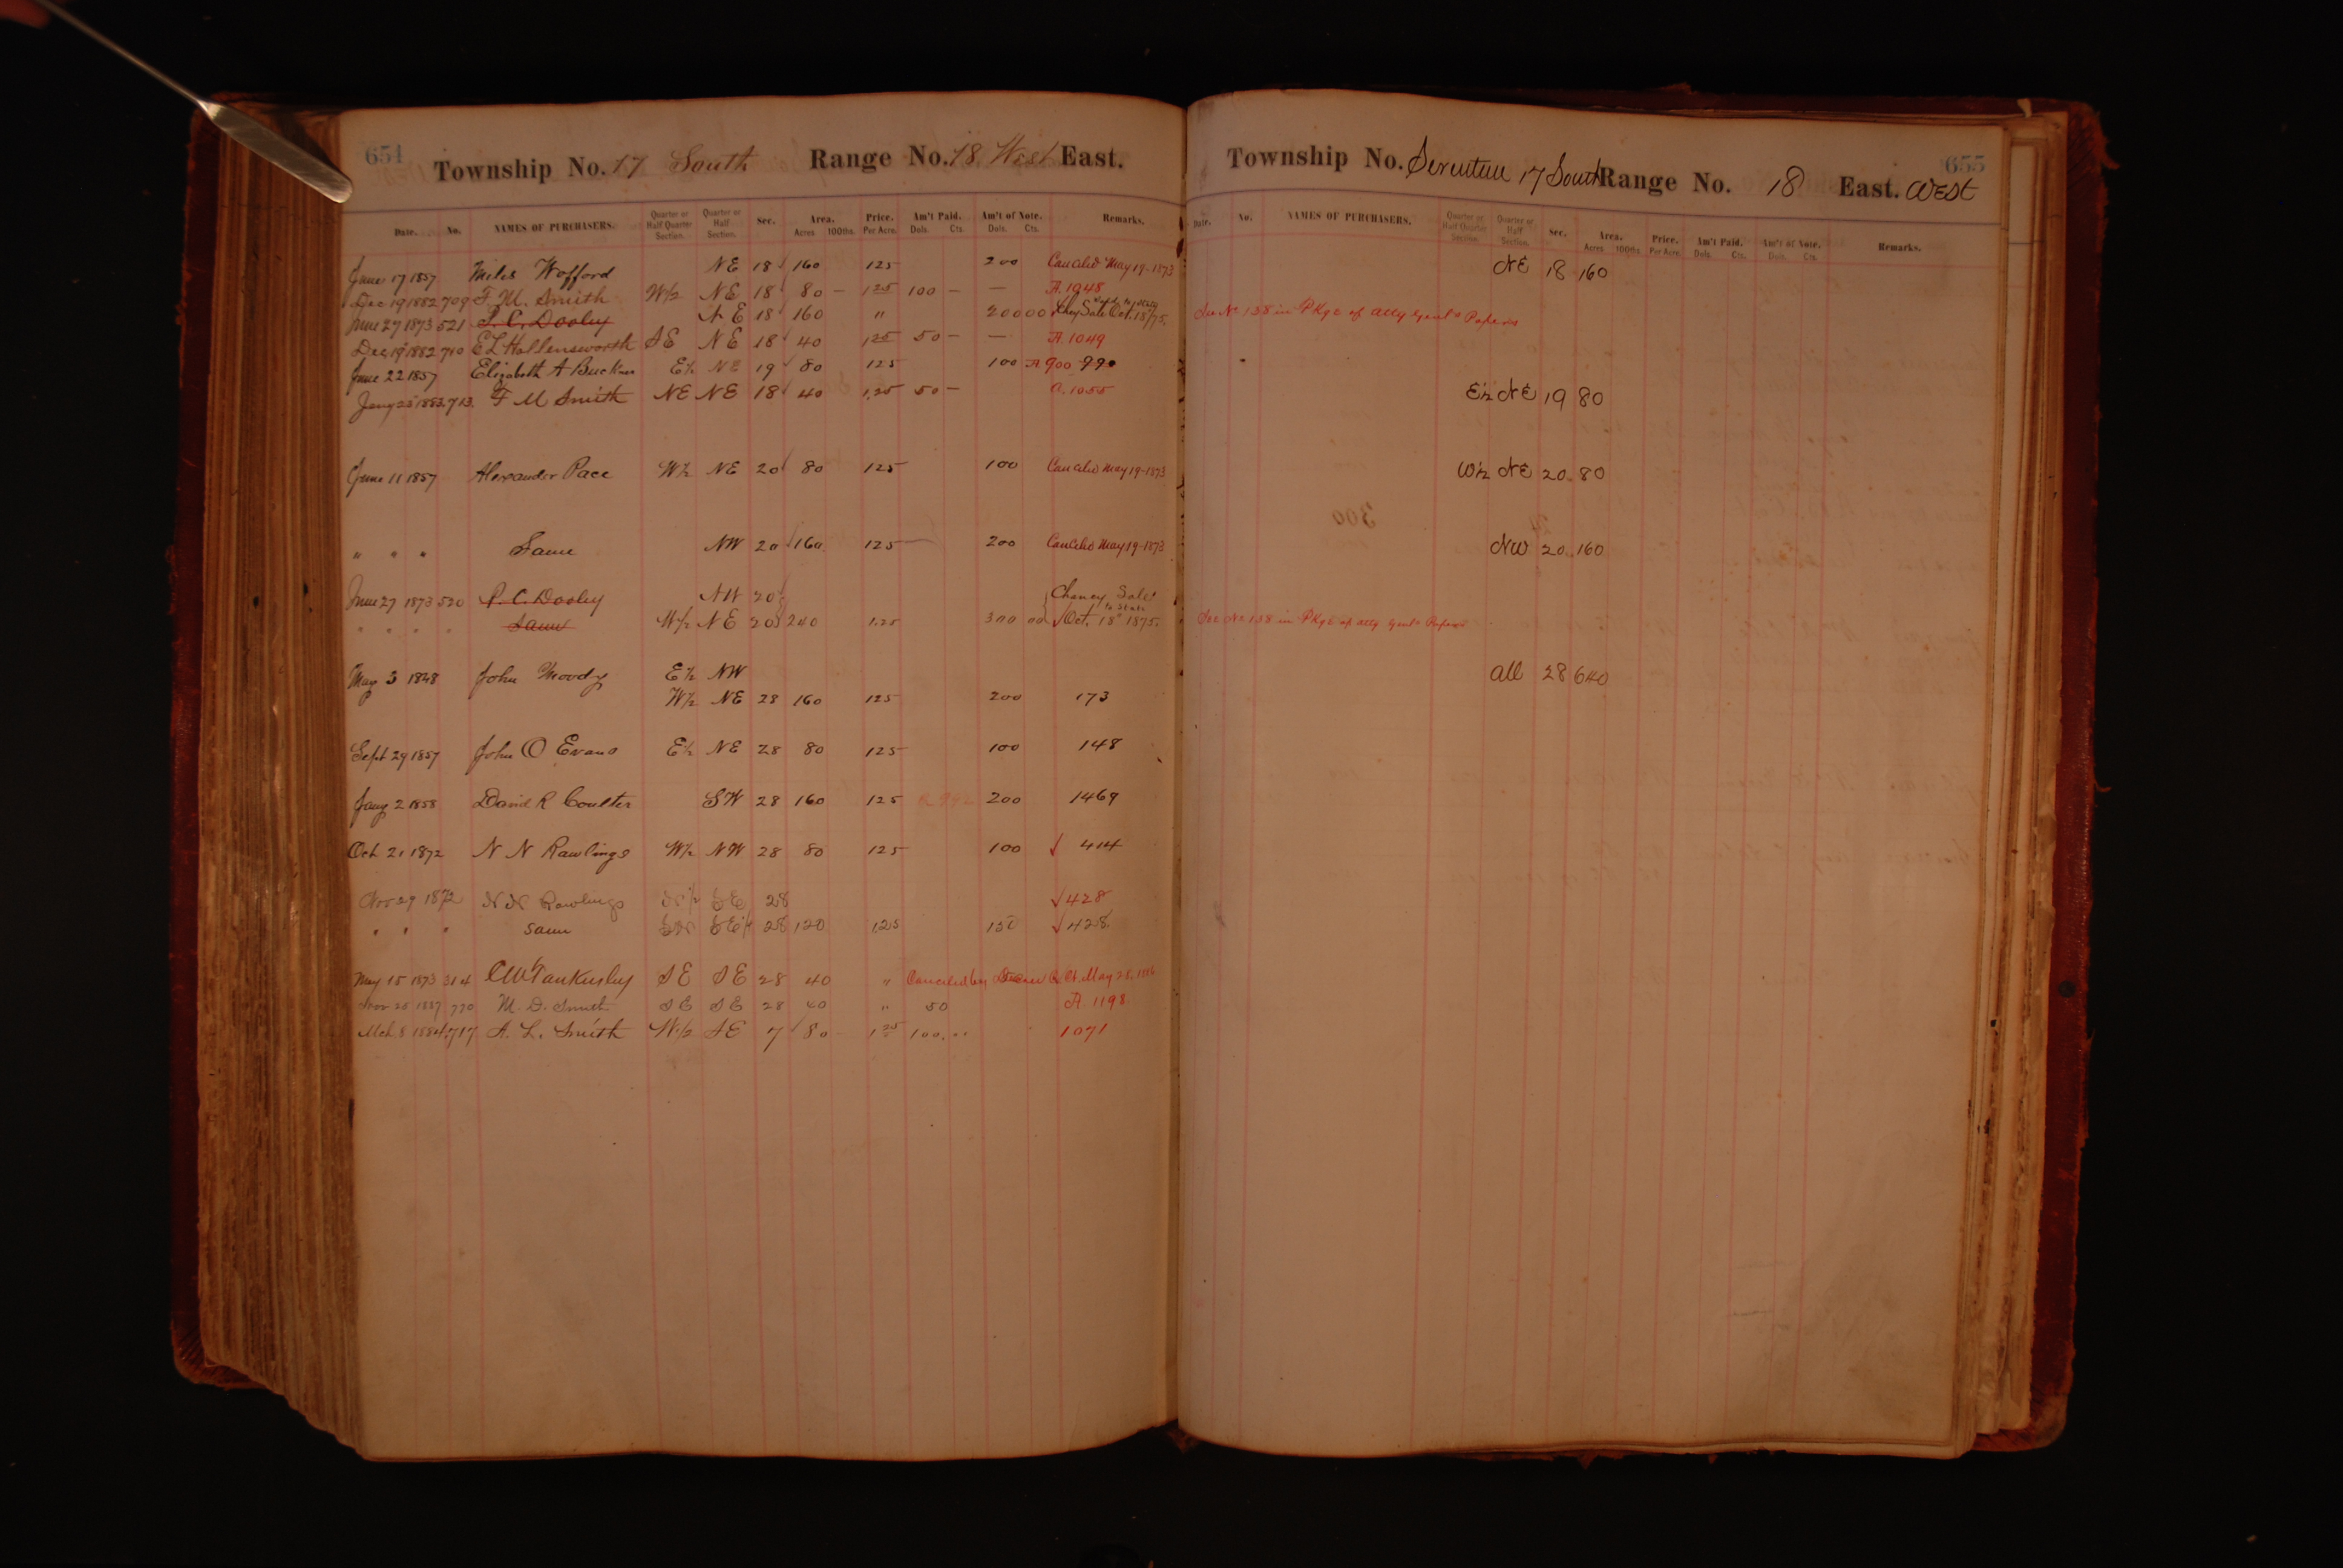 654
Township No. 17 South Range No. 18 West East.
Date. No. NAMES OF PURCHASERS. Quarter or Half Quarter Section. Quarter or Half Section. Sec. Area. Acres 100ths. Price. Per Acre. Am't Paid. Dols. Cts. Am't of Note. Dols. Cts. Remarks.
June 17 1857 Miles Wofford NE 18 160 125 200 Canceled May 19-1873
Dec 19 1882 709 F. M. Smith W½ NE 18 80 – 1 25 100 – — A. 1048
June 27 1873 521 P. C. Dooley NE 18 160 " 200 00 Chey Sale Oct. 18/75.
Dec 19 1882 710 E L Hollensworth SE NE 18 40 1 25 50 – — A. 1049
June 22 1857 Elizabeth A Buckner E½ NE 19 80 125 100 A 900 990
Jany 23 1883 713. F M Smith NE NE 18 40 1.25 50 – A. 1055
June 11 1857 Alexander Pace W½ NE 20 80 125 100 Canceled May 19-1873
" " " Same NW 20 160 125 200 Canceled May 19-1873
June 27 1873 520 P. C. Dooley NW 20 Chancy Sale
" " " " Same W½ NE 20 240 1.25 300 00 to State Oct. 18" 1875.
May 3 1848 John Moody E½ NW
W½ NE 28 160 125 200 173
Sept 29 1857 John O Evans E½ NE 28 80 125 100 148
Jany 2 1858 David R Coulter SW 28 160 125 200 1469
Oct 21 1872 N N Rawlings W½ NW 28 80 125 100 √ 414
Nov 29 1872 N N Rawlings N½ SE 28 √ 428
" " " Same SW SE¼ 28 120 1.25 150 √ 428.
May 15 1873 314 Tankersley SE SE 28 40 " Canceled by Decree Ct. May 28, 1886
Nov 25 1887 770 M. D. Smith SE SE 28 40 " 50 A. 1198
Mch. 8 1884 717 A. L. Smith W½ SE 7 80 – 1 25 100.00 1071
655
Township No. Seventeen 17 South Range No. 18 East. West
Date. No. NAMES OF PURCHASERS. Quarter or Half Quarter Section. Quarter or Half Section. Sec. Area. Acres 100ths. Price. Per Acre. Am't Paid. Dols. Cts. Am't of Note. Dols. Cts. Remarks.
NE 18 160
See No 138 in Pkge of Atty Genl's Papers
E½ NE 19 80
W½ NE 20 80
NW 20 160
See No 138 in Pkge of Atty Genl's Papers
All 28 640